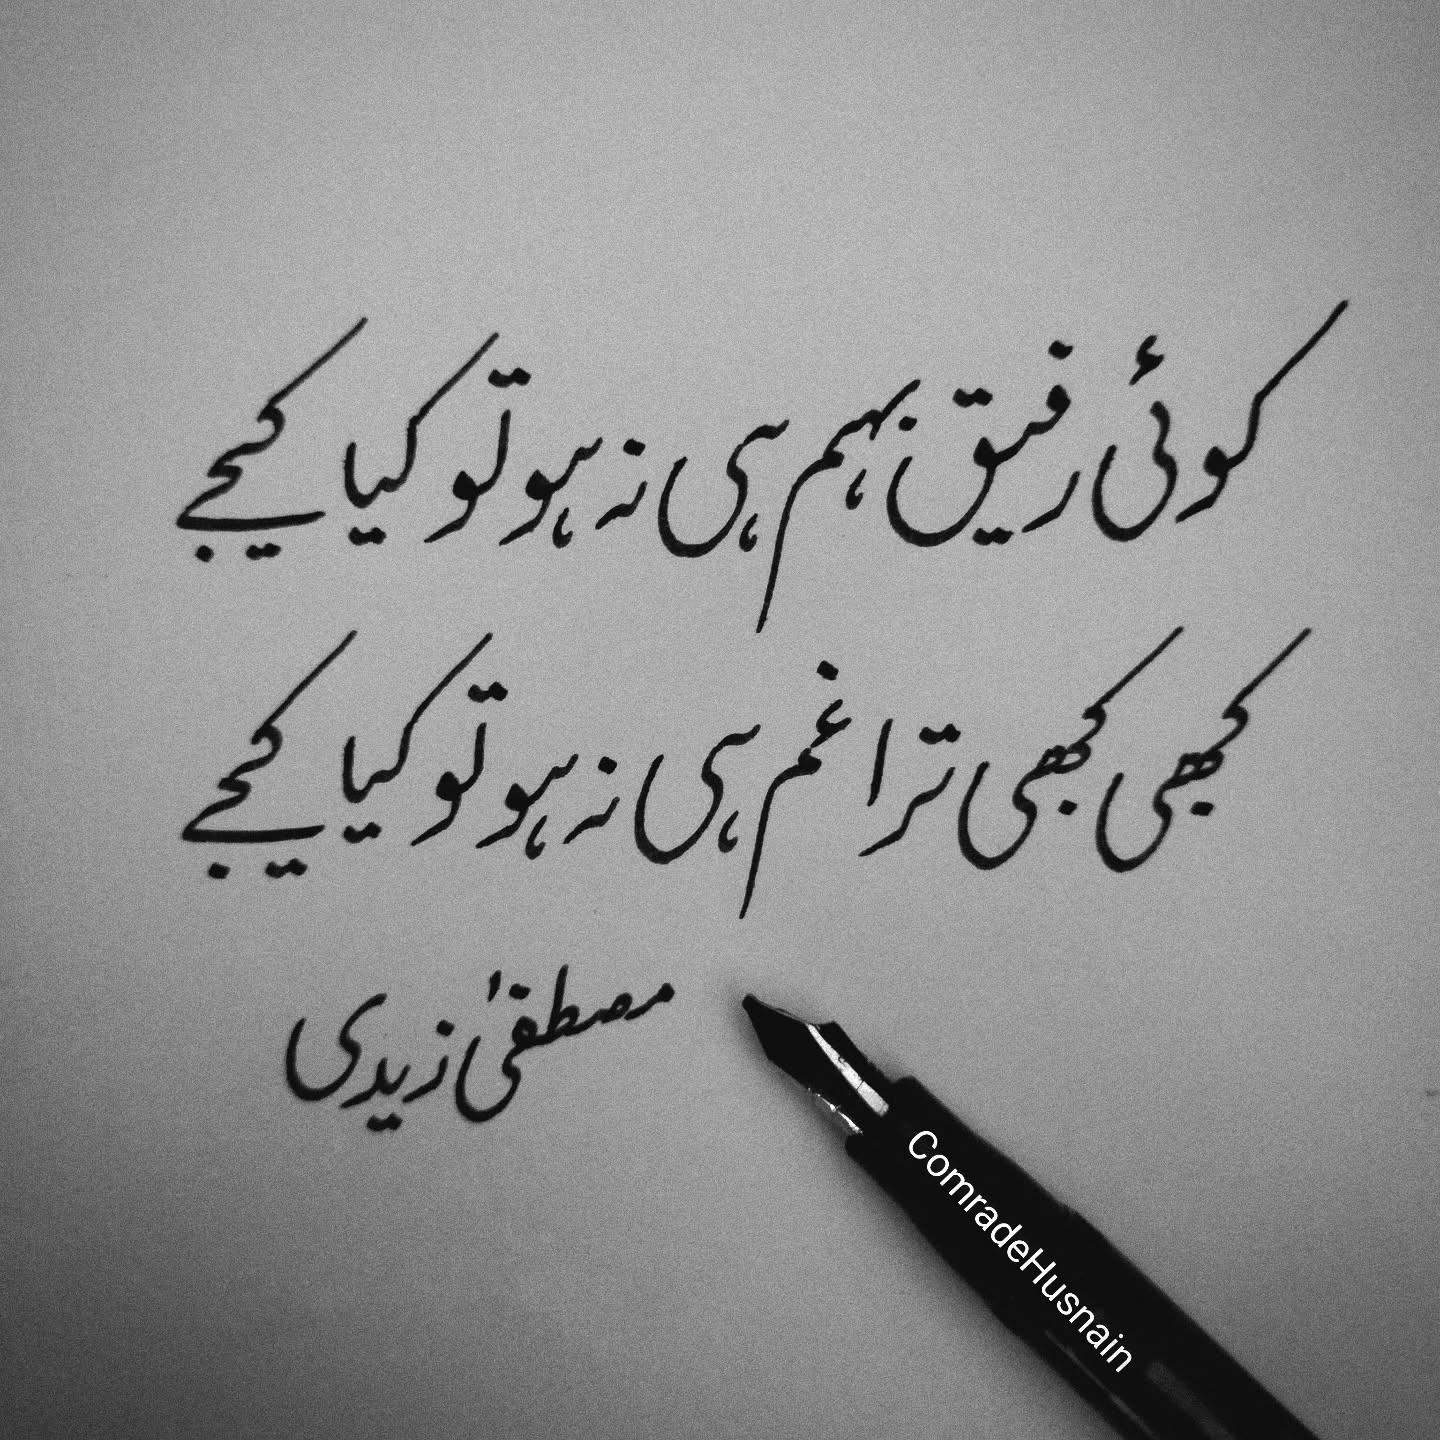 کوئی رفیق بہم ہی نہ ہو تو کیا کیجے
کبھی کبھی ترا غم ہی نہ ہو تو کیا کیجے
مصطفیٰ زیدی
ComradeHusnain